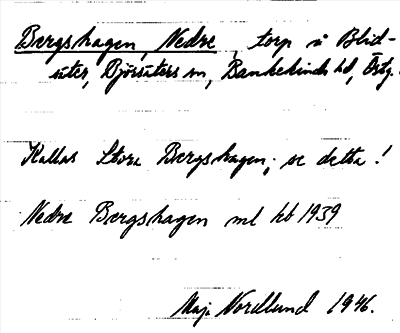 Bergshagen, Nedre, torp i Blid-
säter, Björsäters sn, Bankekinds hd, Östg.
Kallas Stora Bergshagen; se detta!
Nedre Bergshagen ml kb 1939
Maj Nordlund 1946.